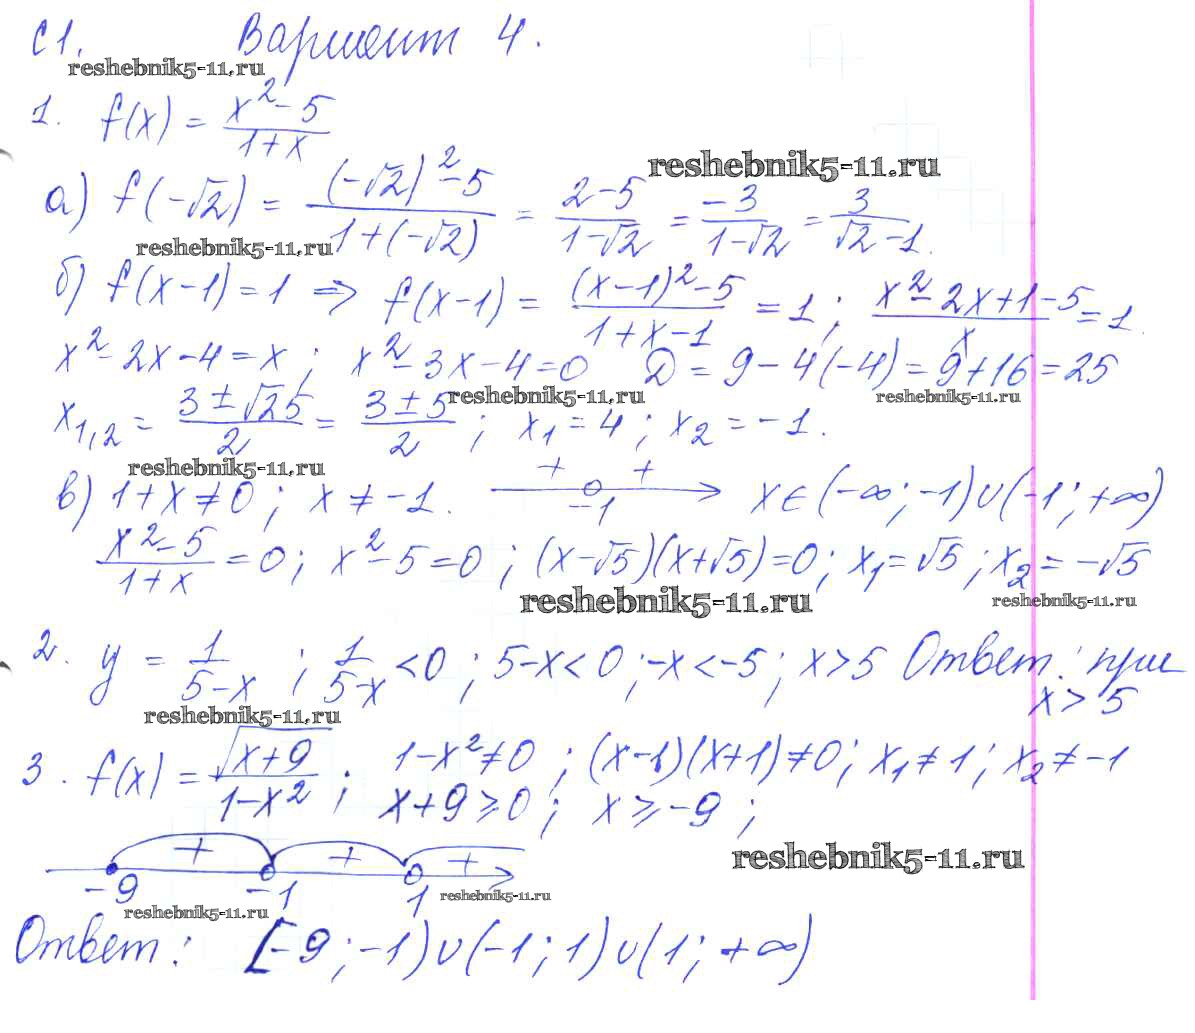 С1. Вариант 4.
reshebnik5-11.ru
1. f(x) = \frac{x^2-5}{1+x}
reshebnik5-11.ru
а) f(-√2) = \frac{(-√2)^2-5}{1+(-√2)} = \frac{2-5}{1-√2} = \frac{-3}{1-√2} = \frac{3}{√2-1}.
reshebnik5-11.ru
б) f(x-1)=1 ⇒ f(x-1) = \frac{(x-1)^2-5}{1+x-1} = 1; \frac{x^2-2x+1-5}{x} = 1.
x^2-2x-4=x; x^2-3x-4=0 D = 9-4(-4)=9+16=25
reshebnik5-11.ru reshebnik5-11.ru
x_{1,2} = \frac{3±√25}{2} = \frac{3±5}{2}; x_1=4; x_2=-1.
reshebnik5-11.ru
+ +
в) 1+x≠0; x≠-1. -1 x∈(-∞;-1)∪(-1;+∞)
\frac{x^2-5}{1+x}=0; x^2-5=0; (x-√5)(x+√5)=0; x_1=√5; x_2=-√5
reshebnik5-11.ru reshebnik5-11.ru
2. y = \frac{1}{5-x}; \frac{1}{5-x}<0; 5-x<0; -x<-5; x>5 Ответ: при
x>5
reshebnik5-11.ru
3. f(x) = \frac{√(x+9)}{1-x^2}; 1-x^2≠0; (x-1)(x+1)≠0; x_1≠1; x_2≠-1
x+9≥0; x≥-9;
+ + +
reshebnik5-11.ru
-9 -1 1
reshebnik5-11.ru reshebnik5-11.ru
Ответ: [-9;-1)∪(-1;1)∪(1;+∞)